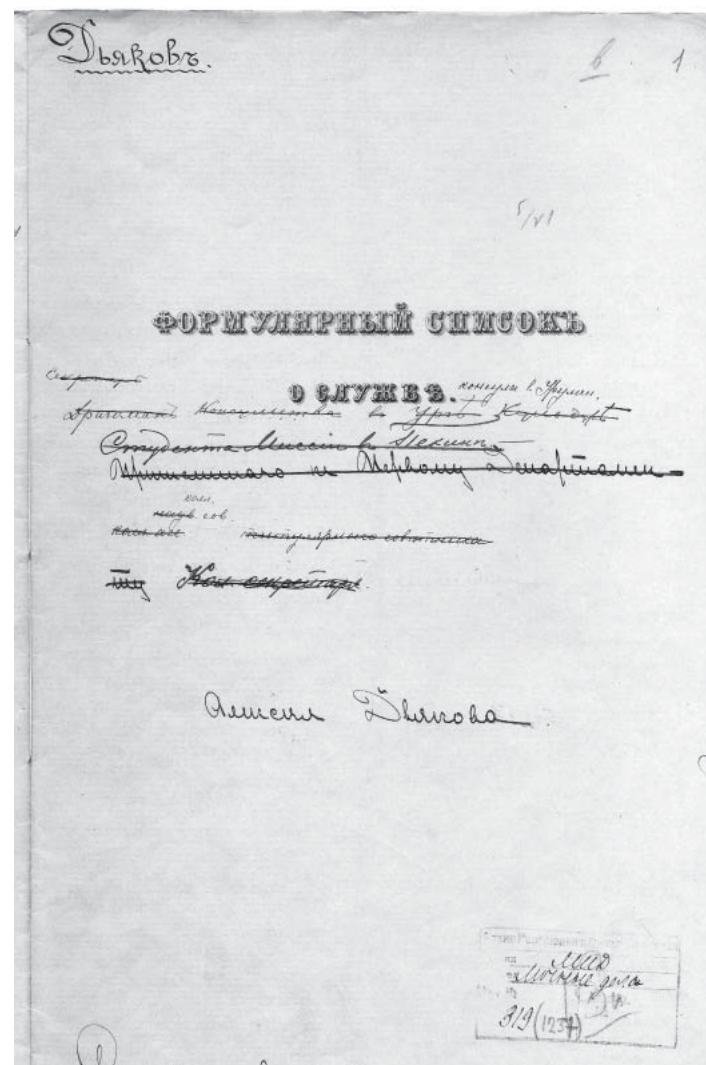 Дьяковъ.
1
5/VI
ФОРМУЛЯРНЫЙ СПИСОКЪ
О СЛУЖБѢ.
консула в
Драгоманъ Консульства в Ургѣ
Студента Миссіи в Пекинѣ
Причисленнаго къ Первому Департамен-
колл.
надв. сов.
титулярнаго совѣтника
ту Кол. секретарь
Алексѣя Дьякова
МИД
Личные дела
319 (1237)